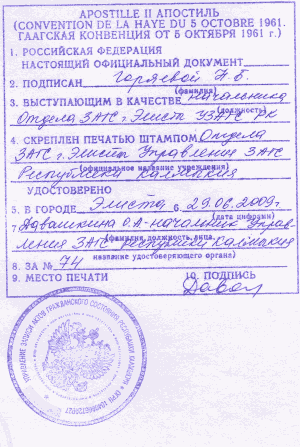 APOSTILLE II АПОСТИЛЬ
(CONVENTION DE LA HAYE DU 5 OCTOBRE 1961.
ГААГСКАЯ КОНВЕНЦИЯ ОТ 5 ОКТЯБРЯ 1961 г.)
1. РОССИЙСКАЯ ФЕДЕРАЦИЯ
НАСТОЯЩИЙ ОФИЦИАЛЬНЫЙ ДОКУМЕНТ
2. ПОДПИСАН Горяевой
(фамилия)
3. ВЫСТУПАЮЩИМ В КАЧЕСТВЕ Начальника
(должность)
Отдела ЗАГС г. Элиста УЗАГС РК
4. СКРЕПЛЕН ПЕЧАТЬЮ ШТАМПОМ Отдела
ЗАГС г. Элиста Управления ЗАГС
(официальное название учреждения)
Республики Калмыкия
УДОСТОВЕРЕНО
5. В ГОРОДЕ Элиста 6. 29.06.2009г.
(дата цифрами)
7. О.А - начальник Управ-
(фамилия должность лица
ления ЗАГС республики Калмыкия
название удостоверяющего органа)
8. ЗА № 74
9. МЕСТО ПЕЧАТИ 10. ПОДПИСЬ
УПРАВЛЕНИЕ ЗАПИСИ АКТОВ ГРАЖДАНСКОГО СОСТОЯНИЯ РЕСПУБЛИКИ КАЛМЫКИЯ